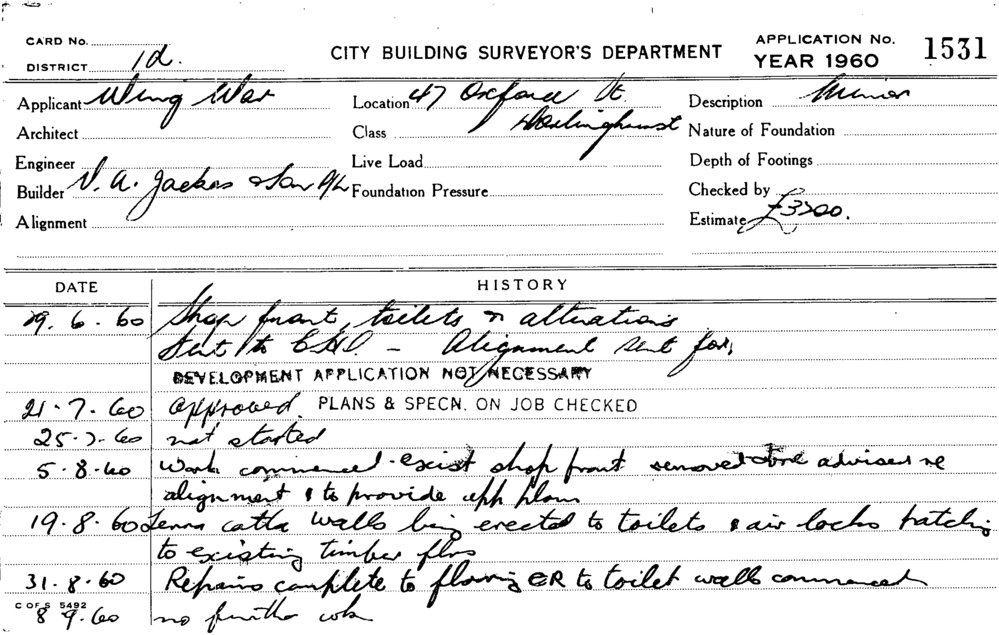 CARD No.
DISTRICT 1d.
CITY BUILDING SURVEYOR'S DEPARTMENT
APPLICATION No. 1531
YEAR 1960
Applicant Wing Wat
Location 47 Oxford St.
Darlinghurst
Description Minor
Architect
Class
Nature of Foundation
Engineer
Live Load
Depth of Footings
Builder V. A. & Son P/L
Foundation Pressure
Checked by
Alignment
Estimate £3200.
DATE HISTORY
29. 6. 60 Shop front, toilets & alterations
Sent to C.H.I. - Alignment sent for,
DEVELOPMENT APPLICATION NOT NECESSARY
21. 7. 60 approved. PLANS & SPECN. ON JOB CHECKED
25. 7. 60 not started
5. 8. 60 Work commenced. exist shop front removed advised re
alignment & to provide app plans
19. 8. 60 Terra cotta walls being erected to toilets & air locks
to existing timber flrs
31. 8. 60 Repairs complete to flooring CR to toilet walls commenced
C OF S 5492
8 9. 60 no further wk